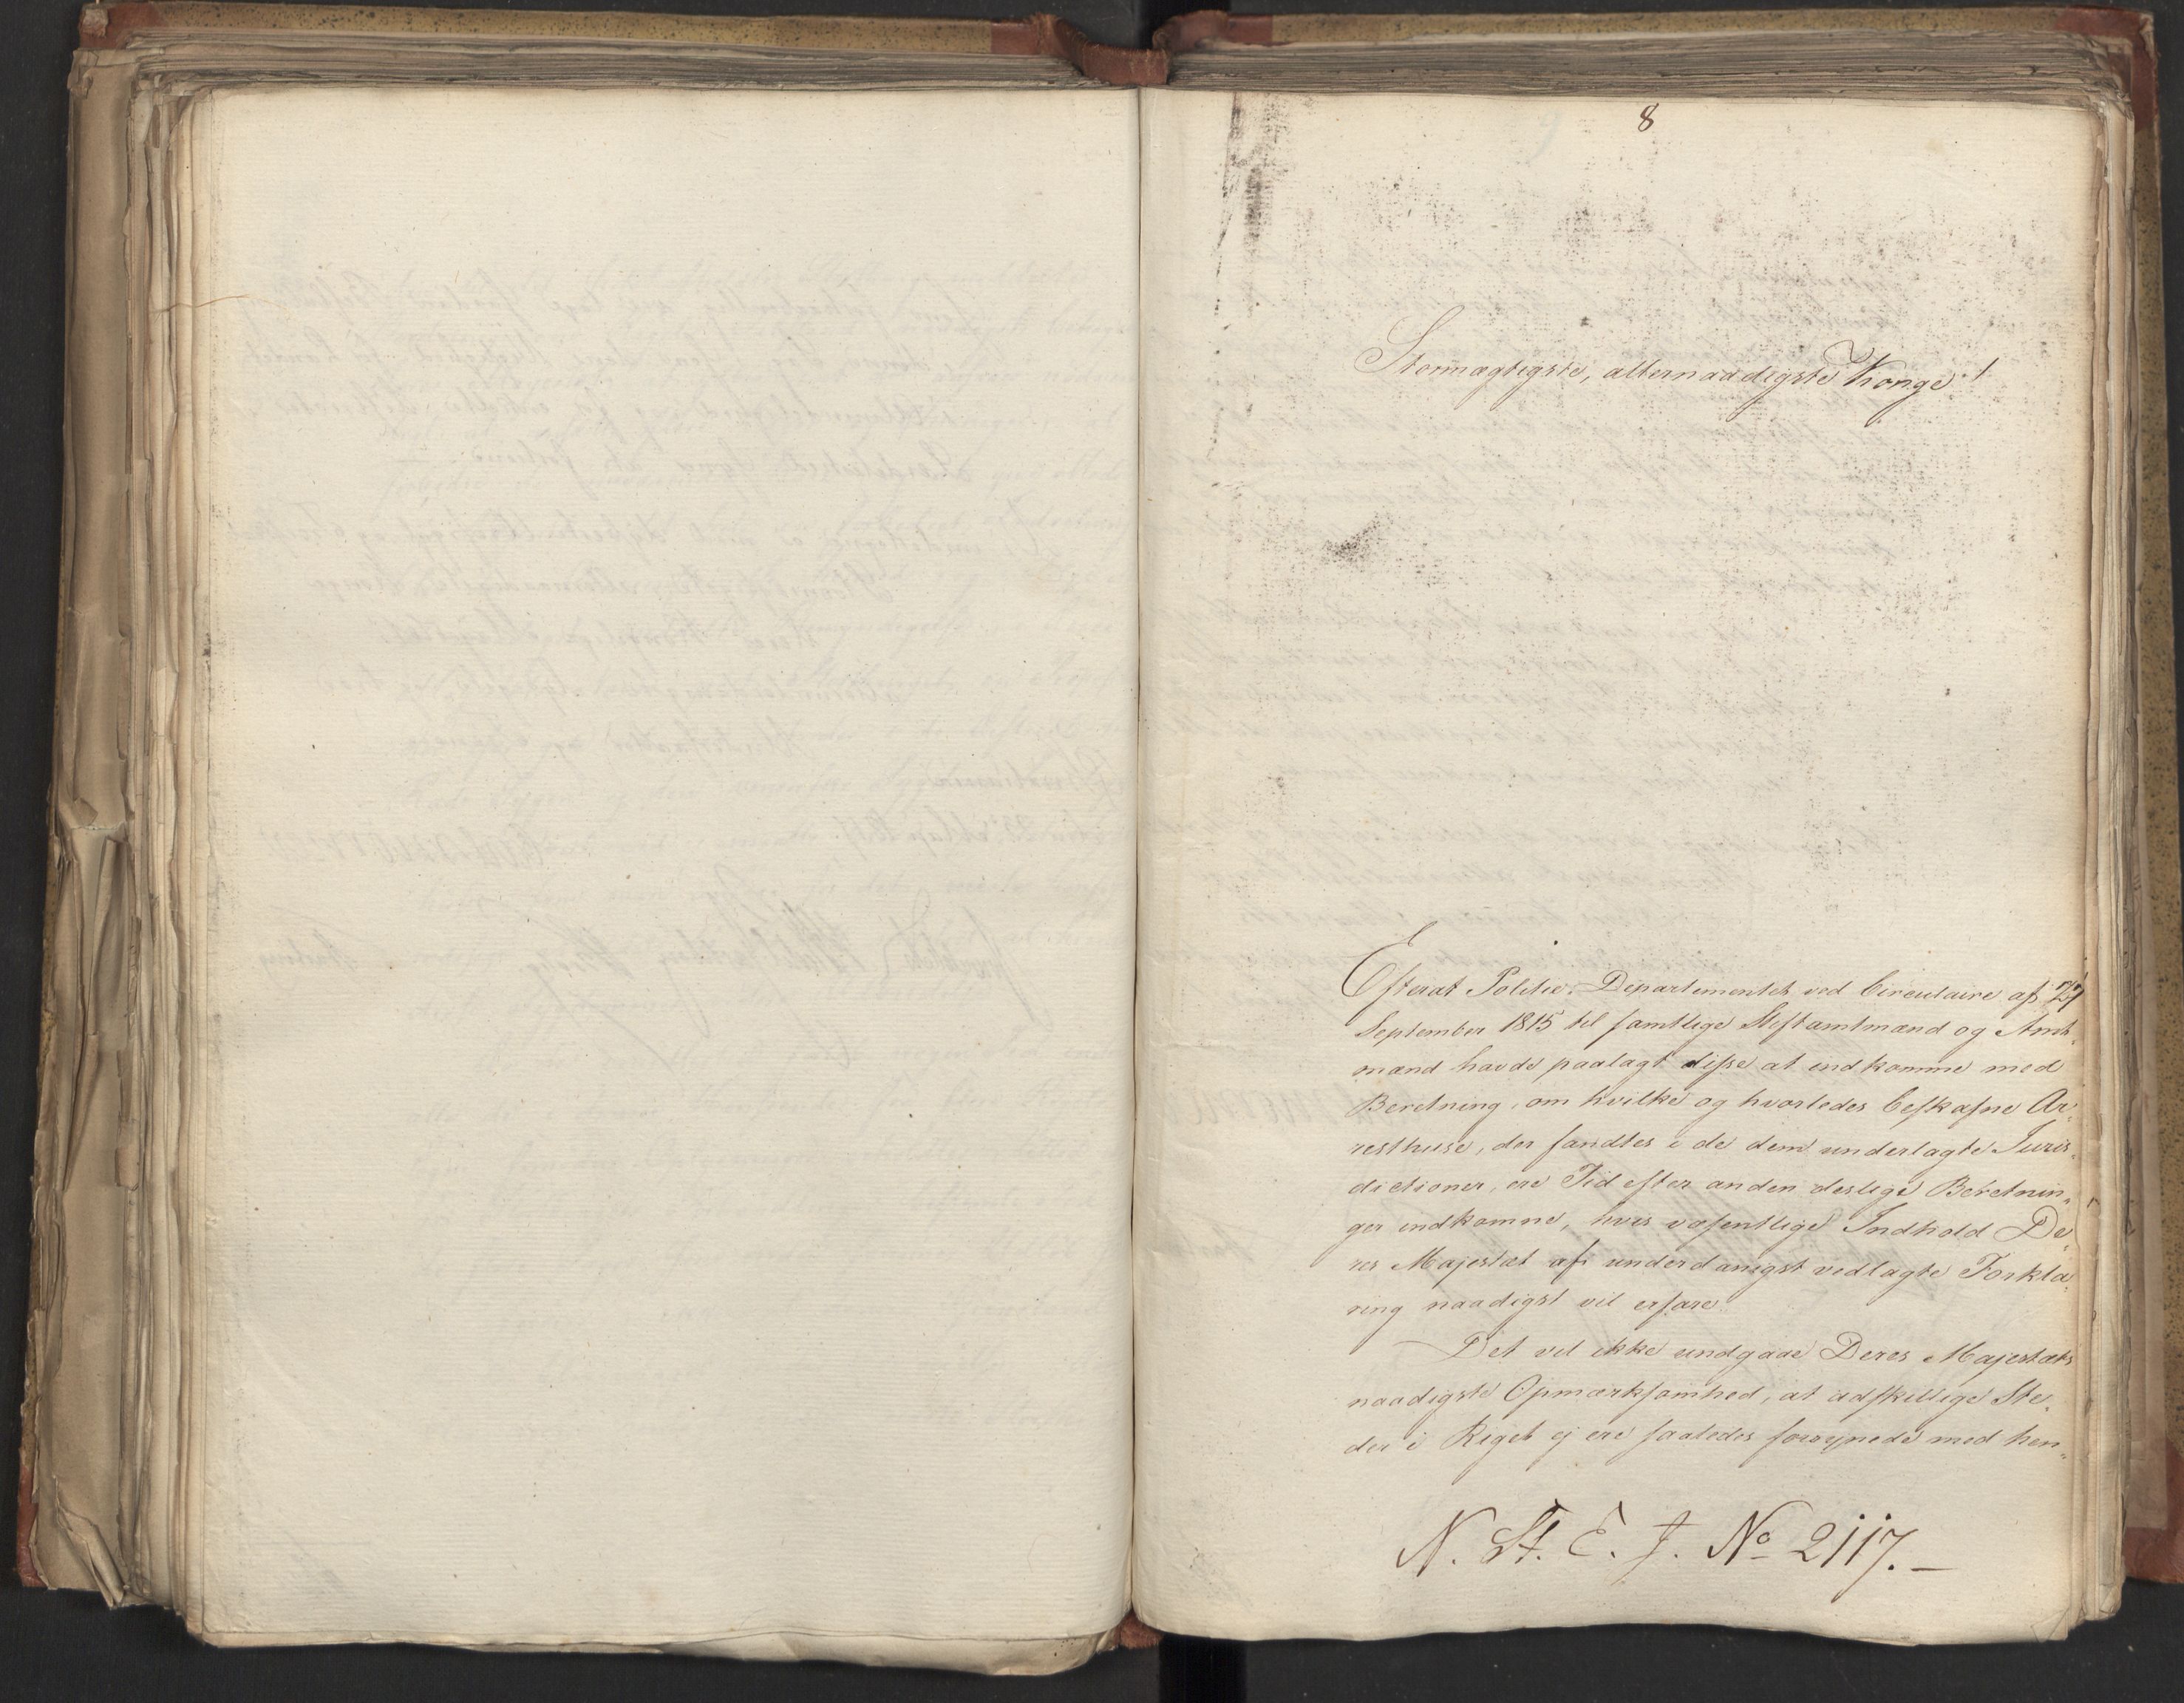 8
Stormægtigste, allernaadigste Konge!
Efterat Politie-Departementet ved Circulaire af 27
September 1815 til samtlige Stiftamtmænd og Amt-
mænd havde paalagt disse at indkomme med
Beretning, om hvilke og hvorledes beskafne Ar-
resthuse, der fandtes i de dem underlagte Juris-
dictioner, ere Tid efter anden deslige Beretnin-
ger indkomne, hvis væsentlige Indhold De-
res Majestæt af underdanigst vedlagte Forkla-
ring naadigst vil erfare.
Det vil ikke undgaae Deres Majestæts
naadigste Opmærksomhed, at adskillige Ste-
der i Riget ej ere saaledes forsynede med hen-
N. St. E. J. No 2117.-